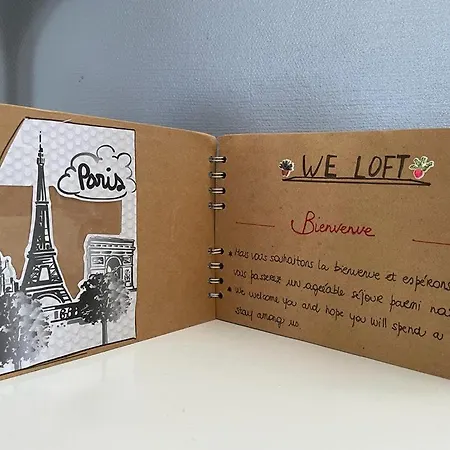 Paris
WE LOFT
Bienvenue
Nous vous souhaitons la bienvenue et espérons
vous passerez un agréable séjour parmi nous
We welcome you and hope you will spend a
stay among us